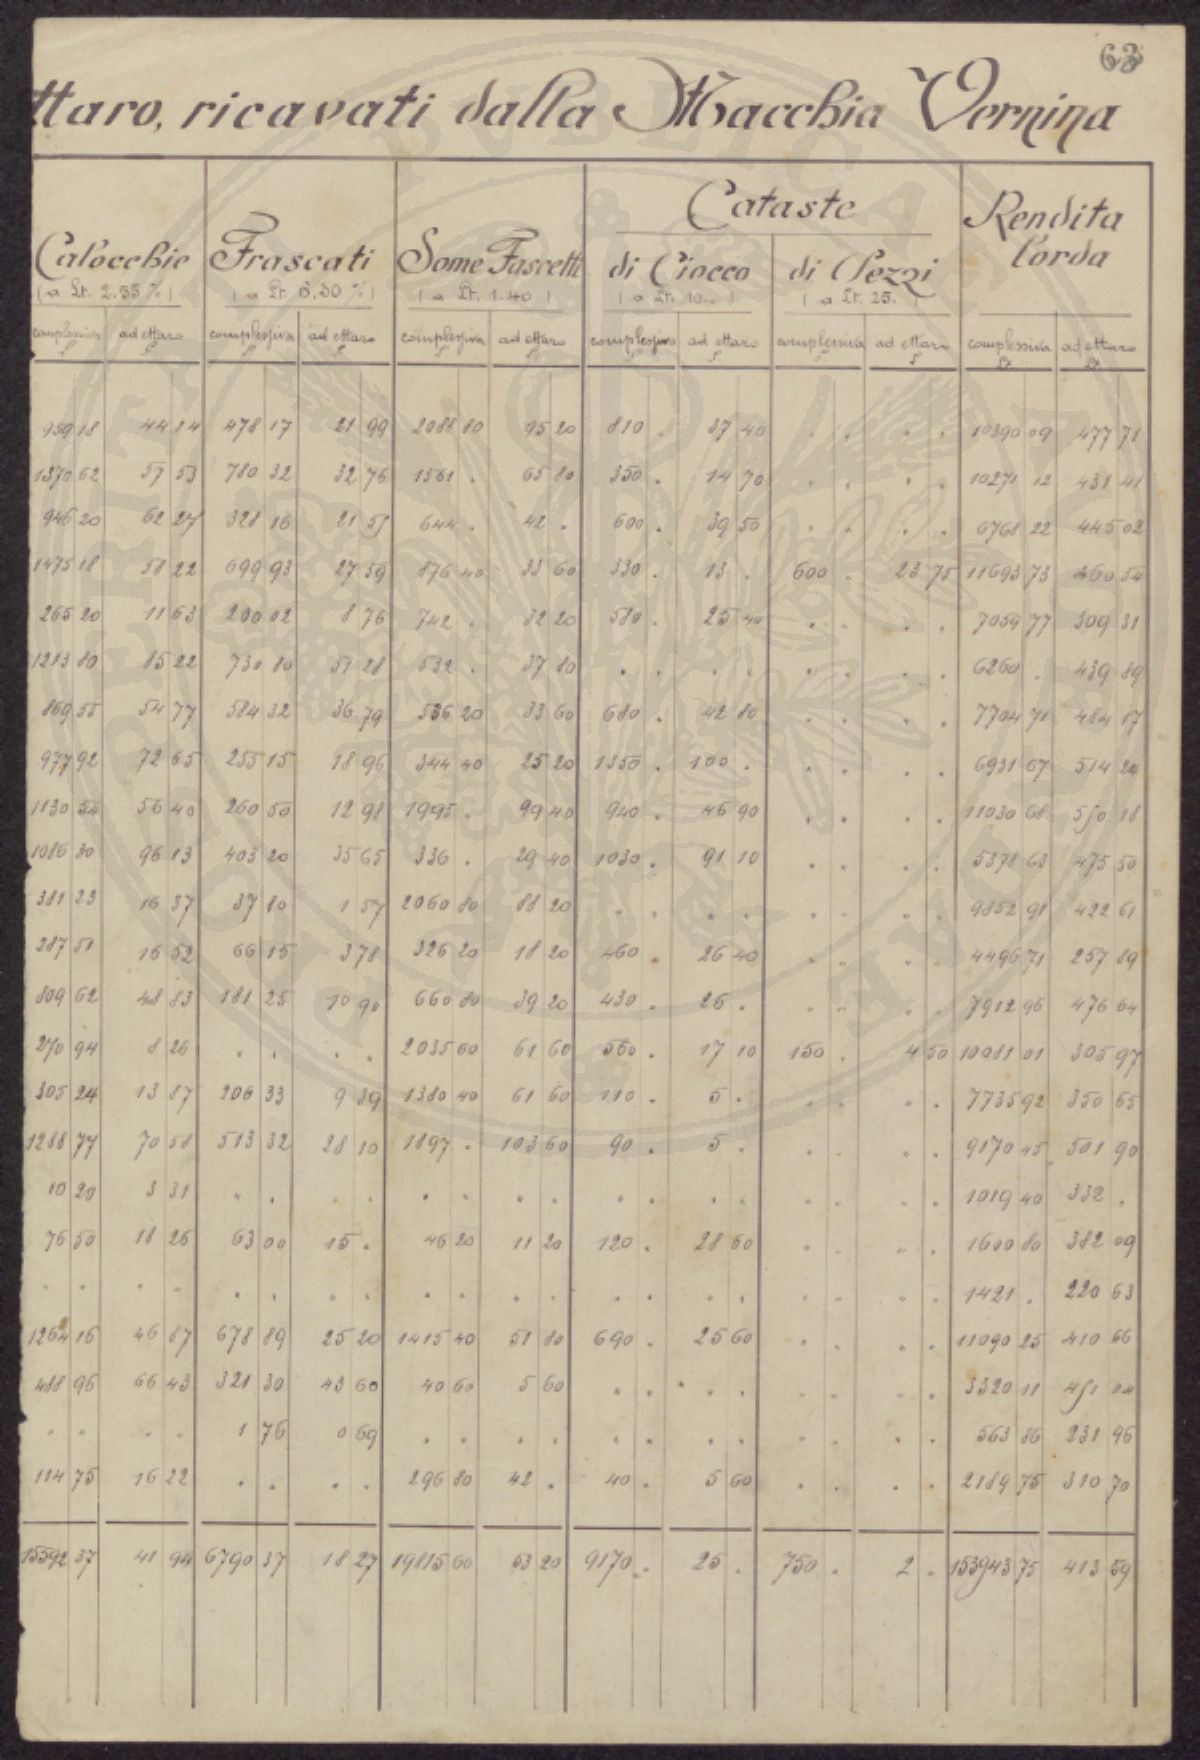 63
ttaro, ricavati dalla Macchia Vernina
Calocchie Frascati Some Fascetti Cataste Rendita lorda
di Ciocco di Pezzi
(a Lt. 2.55 %) (a Lt. 6.30 %) (a Lt. 1.40) (a Lt. 10..) (a Lt. 25.)
complessiva ad ettaro complessiva ad ettaro complessiva ad ettaro complessiva ad ettaro complessiva ad ettaro complessiva ad ettaro
959 18 44 14 478 17 21 99 2088 80 95 20 810 . 37 40 . . . . 10390 09 477 71
1370 62 57 53 780 32 32 76 1561 . 65 80 350 . 14 70 . . . . 10271 12 431 41
946 20 62 27 328 16 21 57 644 . 42 . 600 . 39 50 . . . . 6768 22 445 02
1475 18 58 22 699 93 27 59 876 40 33 60 330 . 13 . 600 . 23 75 11693 73 460 54
265 20 11 63 200 02 8 76 742 . 32 20 580 . 25 40 . . . . 7059 77 309 31
1213 80 85 22 730 80 51 28 532 . 37 80 . . . . . . . . 6260 . 439 89
869 55 54 77 584 32 36 79 536 20 33 60 680 . 42 80 . . . . 7704 71 484 17
977 92 72 65 255 15 18 96 344 40 25 20 1350 . 100 . . . . . 6931 67 514 20
1130 54 56 40 260 50 12 98 1995 . 99 40 940 . 46 90 . . . . 11030 68 550 18
1086 30 96 13 403 20 35 65 336 . 29 40 1030 . 91 10 . . . . 5378 63 475 50
381 23 16 37 37 80 1 57 2060 80 88 20 . . . . . . . . 9852 91 422 61
287 51 16 52 66 15 3 78 326 20 18 20 460 . 26 40 . . . . 4496 71 257 89
809 62 48 83 181 25 10 90 660 80 39 20 430 . 26 . . . . . 7912 96 476 64
270 94 8 26 . . . . 2035 60 61 60 560 . 17 10 150 . 4 50 10081 01 305 97
305 24 13 87 206 33 9 39 1380 40 61 60 110 . 5 . . . . . 7735 92 350 65
1288 77 70 58 513 32 28 10 1897 . 103 60 90 . 5 . . . . . 9170 45 501 90
10 20 3 31 . . . . . . . . . . . . . . . . 1019 40 332 .
76 50 18 26 63 00 15 . 46 20 11 20 120 . 28 60 . . . . 1600 80 382 09
. . . . . . . . . . . . . . . . . . . . 1421 . 220 63
1264 16 46 87 678 89 25 20 1415 40 51 80 690 . 25 60 . . . . 11090 25 410 66
488 96 66 43 321 30 43 60 40 60 5 60 . . . . . . . . 3320 11 451 04
. . . . 1 76 0 69 . . . . . . . . . . . . 563 36 231 96
114 75 16 22 . . . . 296 80 42 . 40 . 5 60 . . . . 2189 75 310 70
15592 37 41 94 6790 37 18 27 19815 60 53 20 9170 . 25 . 750 . 2 . 153943 75 413 59